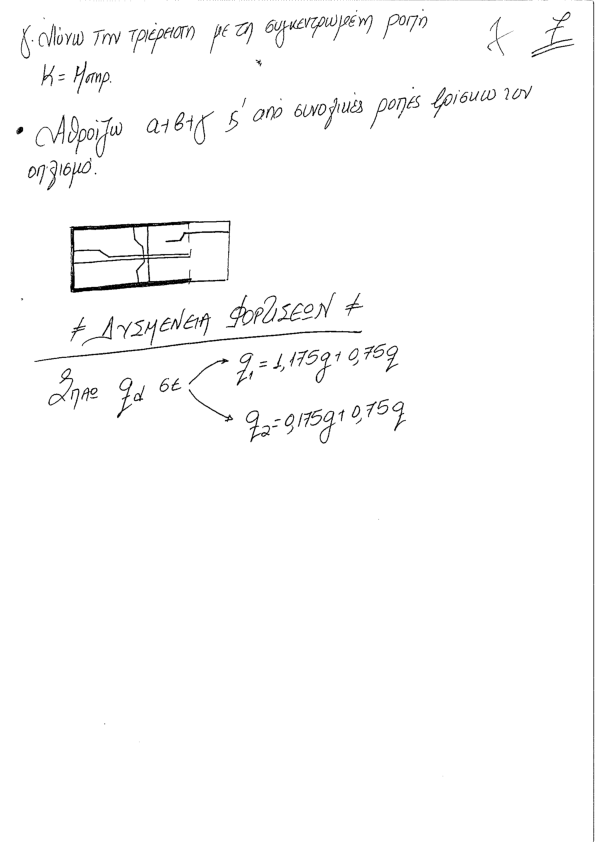 γ. Λύνω την τριέρειστη με τη συγκεντρωμένη ροπή
K = Mστηρ.
• Αθροίζω α+β+γ & από συνολικές ροπές βρίσκω τον
οπλισμό.
≠ ΔΥΣΜΕΝΕΙΑ ΦΟΡΤΙΣΕΩΝ ≠
Σπάω qd σε
q1 = 1,175g + 0,75q
q2 = 0,175g + 0,75q